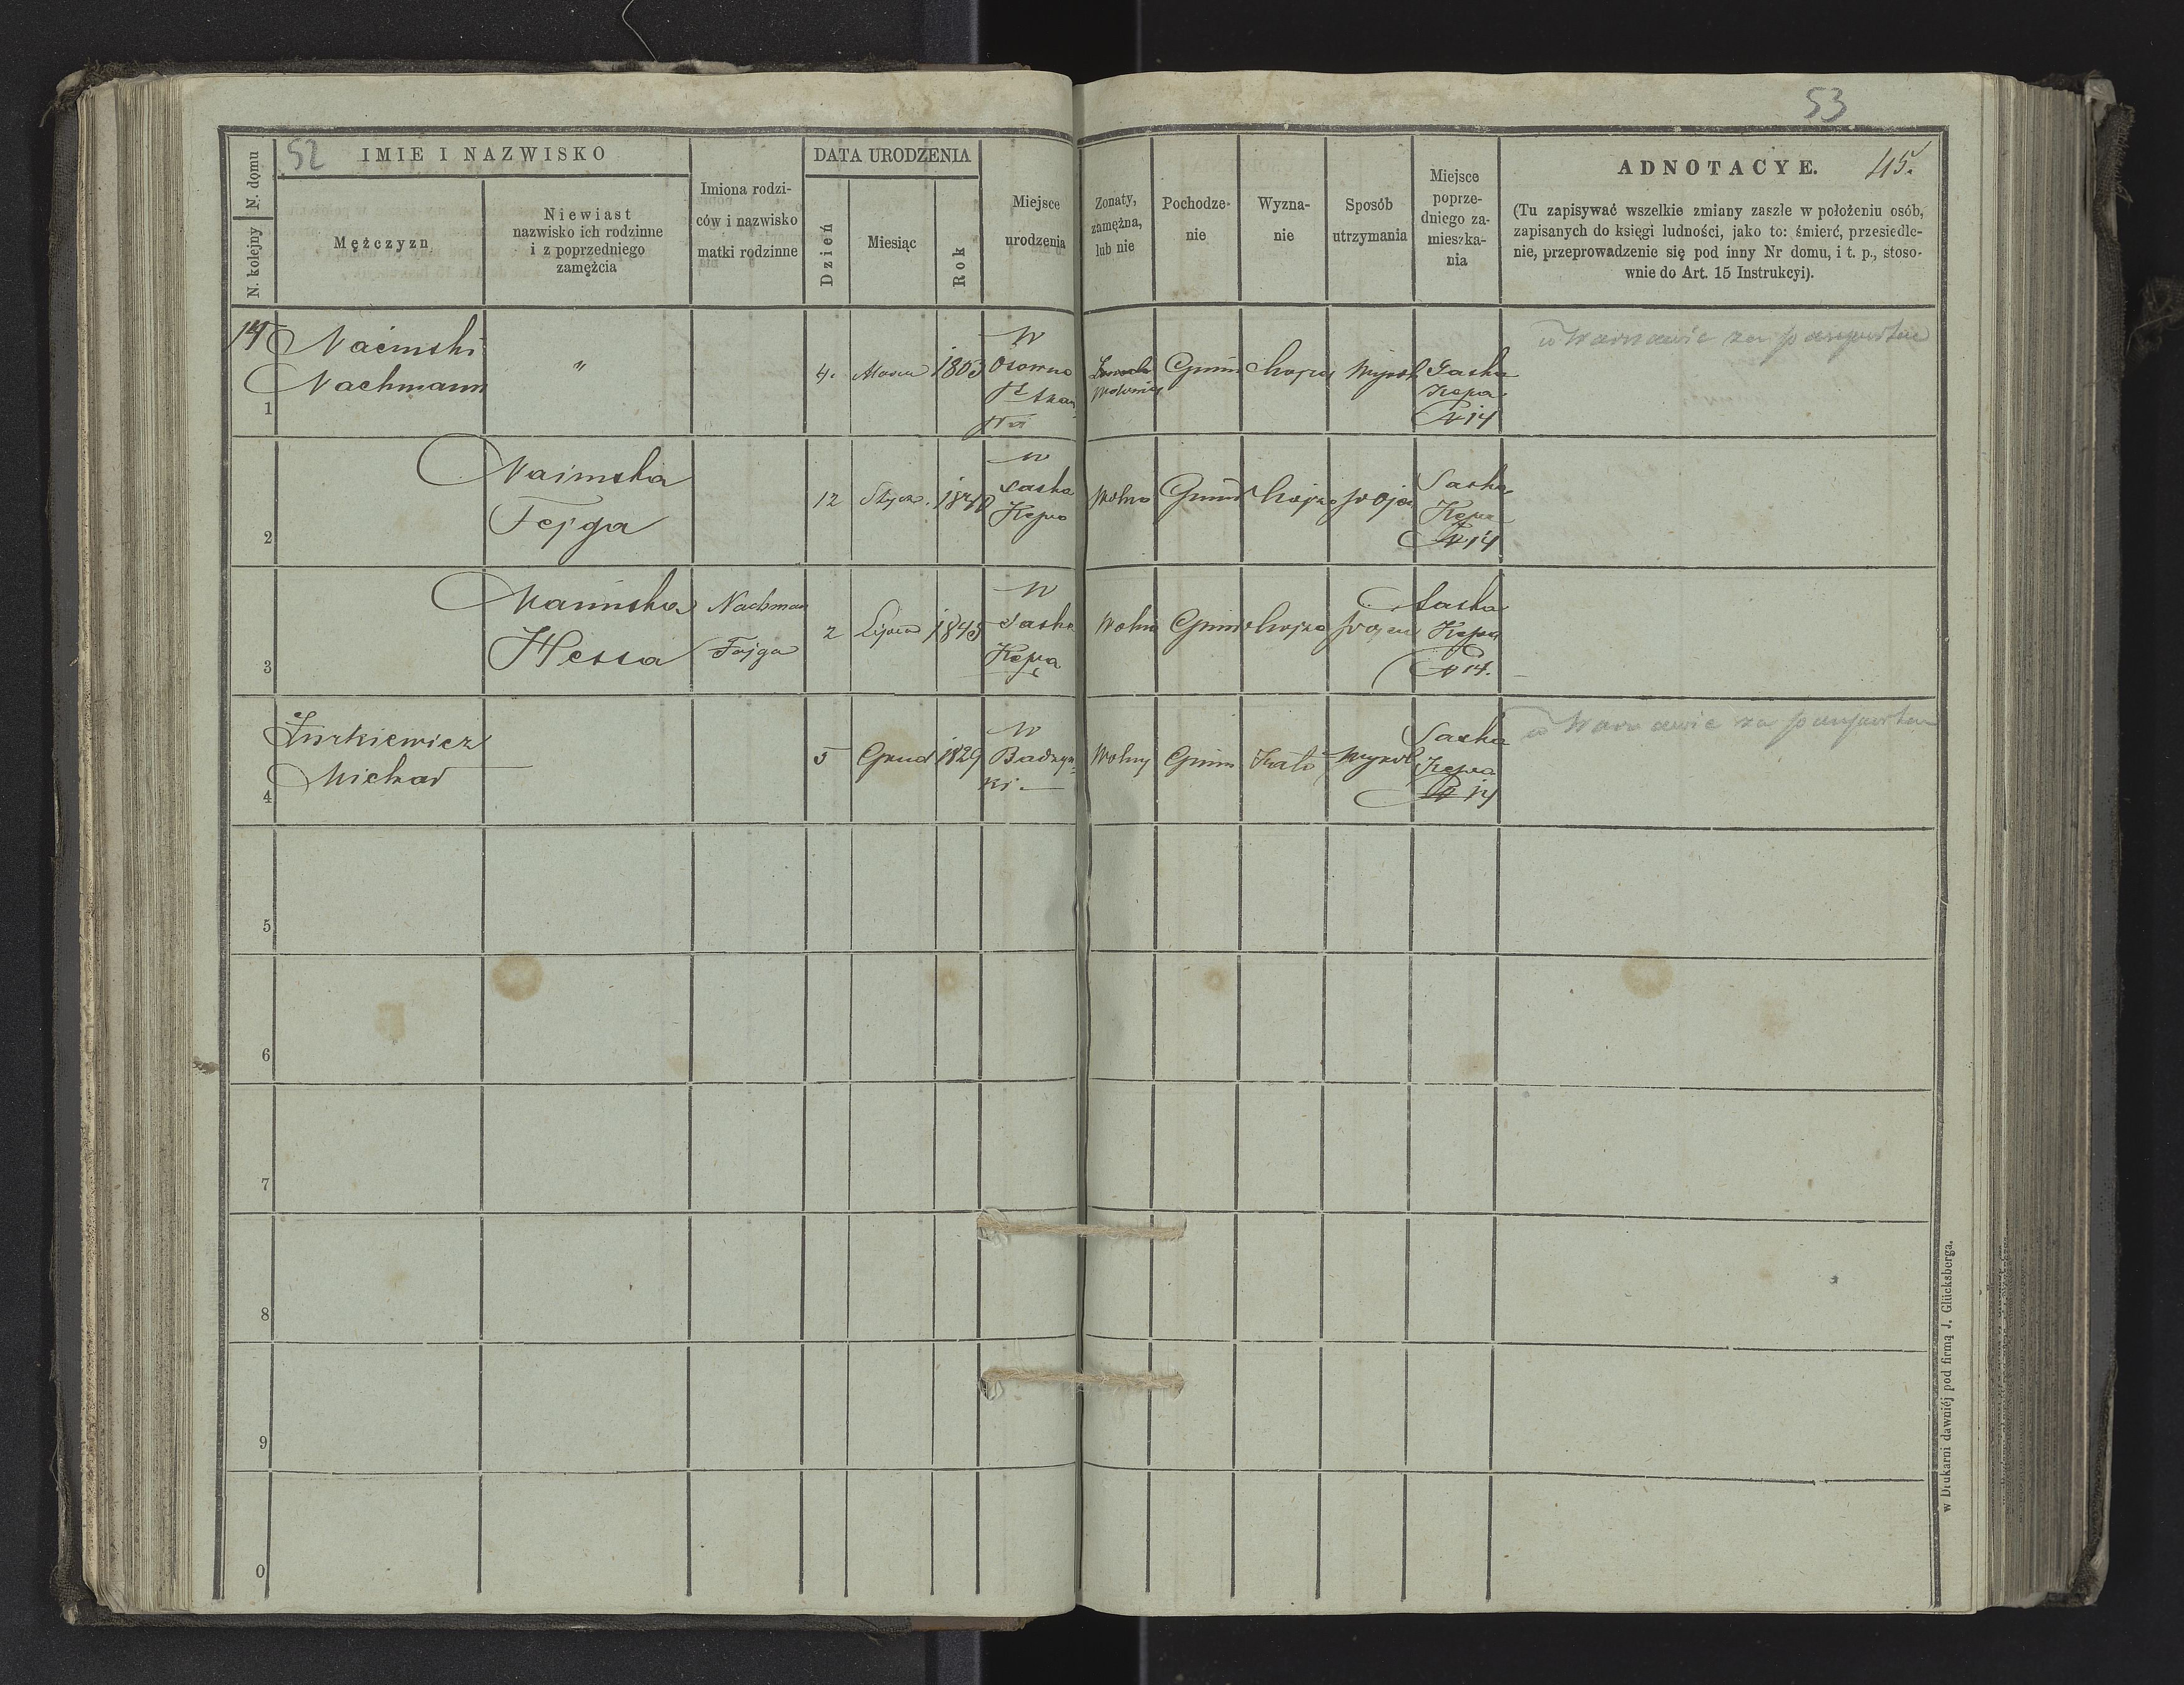 52
53
45.
N. domu
N. kolejny
IMIE I NAZWISKO
Mężczyzn
Niewiast
nazwisko ich rodzinne
i z poprzedniego
zamężcia
Imiona rodzi-
ców i nazwisko
matki rodzinne
DATA URODZENIA
Dzień
Miesiąc
Rok
Miejsce
urodzenia
Zonaty,
zamężna,
lub nie
Pochodze-
nie
Wyzna-
nie
Sposób
utrzymania
Miejsce
poprze-
dniego za-
mieszka-
nia
ADNOTACYE.
(Tu zapisywać wszelkie zmiany zaszłe w położeniu osób,
zapisanych do księgi ludności, jako to: śmierć, przesiedle-
nie, przeprowadzenie się pod inny Nr domu, i t. p., stoso-
wnie do Art. 15 Instrukcyi).
14
1
Naimski
Nachmann
"
4.
1803
w
Gmin
Saska
Kępa
N 14
w Warszawie za paszportem
2
Naimska
Fejga
12
Stycz.
w
Saska
Kępa
Wolna
Gmin
Saska
Kępa
N 14
3
Naimska
Hessa
Nachman
Fajga
2
Lipca
1843
w
Saska
Kępa
Wolna
Gmin
Saska
Kępa
N 14.
4
Żurkiewicz
Michał
5
Grud
1829
w
Wolny
Gmin
Kato
Wyrob
Saska
Kępa
N 14
w Warszawie za paszportem
5
6
7
8
9
0
w Drukarni dawniéj pod firmą J. Glücksberga.